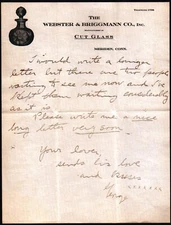 THE
WEBSTER & BRIGGMANN CO., INC.
CUT GLASS
MERIDEN, CONN.
I would write a longer
letter but there are two people
waiting to see me now and I've
kept them waiting considerably
as it is
Please write me a nice
long letter very soon
Your lover
sends his love
and kisses
xxxxxxx